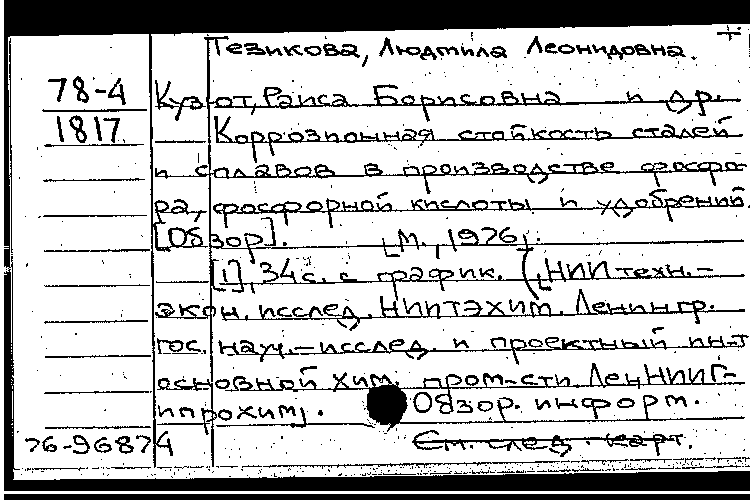 +
Тезикова, Людмила Леонидовна.
78-4
1817
Куз от, Раиса Борисовна и др.
Коррозионная стойкость сталей
и сплавов в производстве фосфо-
ра, фосфорной кислоты и удобрений.
[Обзор]. [М., 1976].
[1], 34 с. с график. ([НИИ техн.-
экон. исслед. НИИТЭХИМ. Ленингр.
гос. науч.-исслед. и проектный ин-т
основной хим. пром-сти. ЛенНИИГ-
ипрохим]. Обзор. информ.
См. след. карт.
76-96874